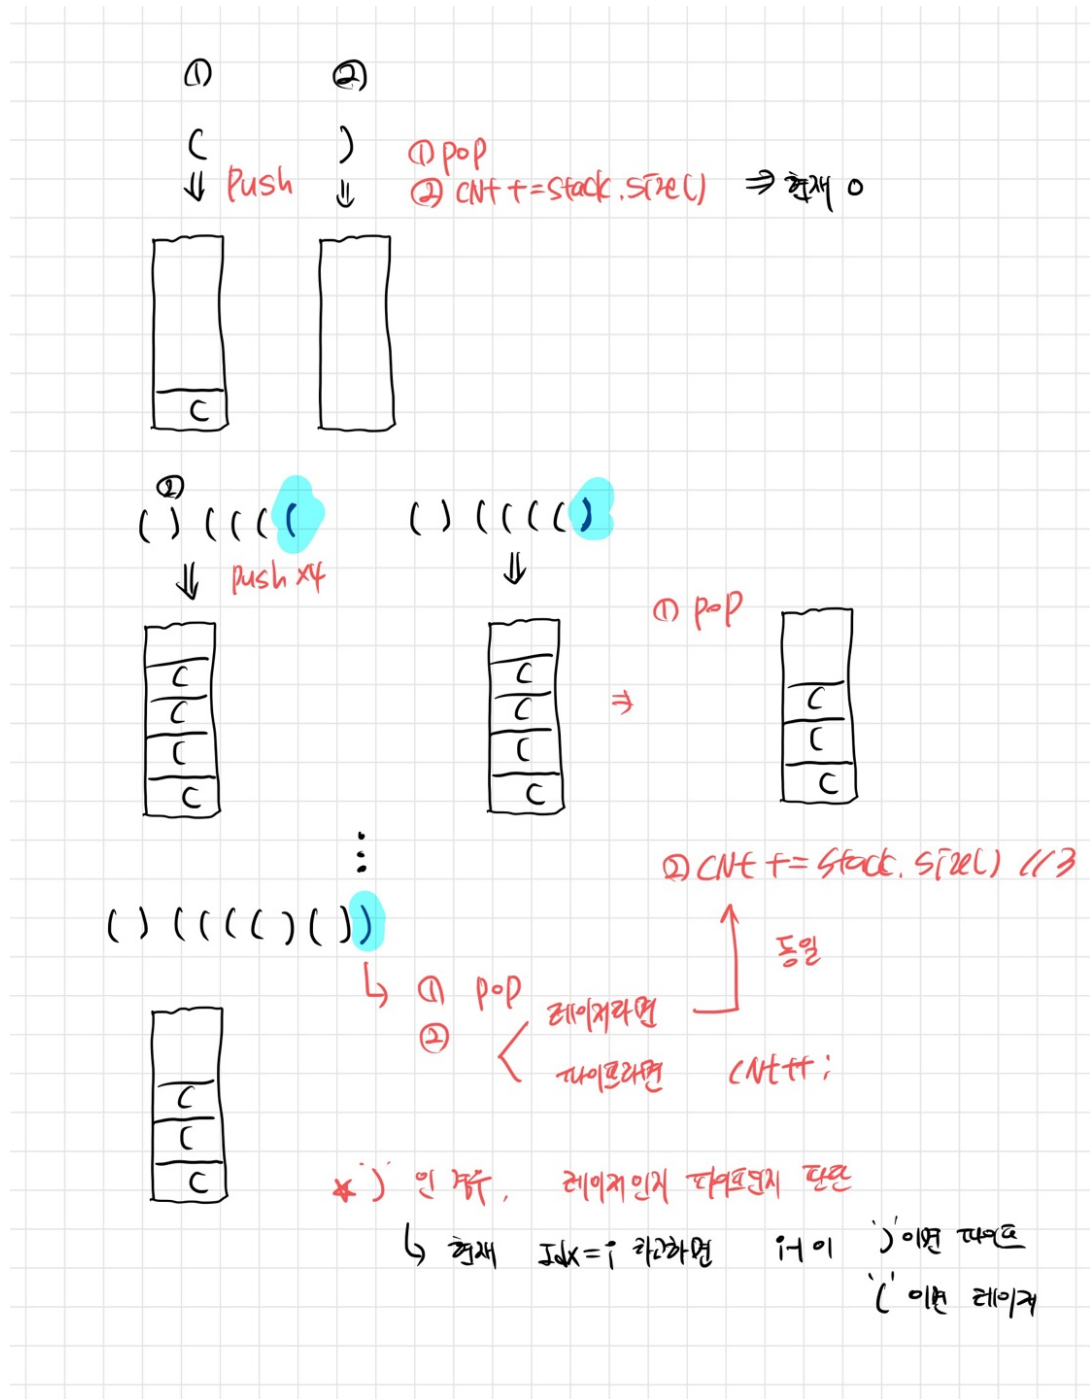 ① ②
( )
⇓ Push ⇓ ① pop
② cnt += stack.size() ⇒ 현재 0
(
②
( ) ( ( ( ( ( ) ( ( ( ( )
⇓ push x4 ⇓
① pop
( ( (
( ( ⇒ (
( ( (
( (
⋮
② cnt += stack.size() //3
( ) ( ( ( ( ) ( ) )
동일
↳ ① pop
② < 레이저라면
파이프라면 cnt++;
(
(
(
★ ')' 인 경우, 레이저인지 파이프인지 판단
↳ 현재 Idx=i 라고하면 i-1 이 ')'이면 파이프
'(' 이면 레이저